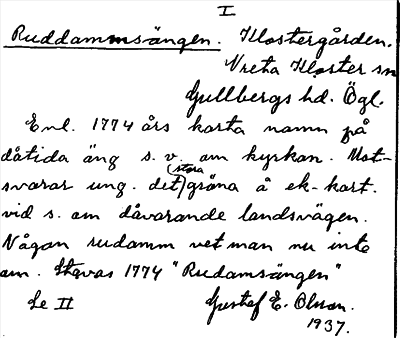 I
Ruddammsängen. Klostergården.
Vreta Kloster sn
Gullbergs hd. Ögl.
Enl. 1774 års karta namn på
dåtida äng s. v. om kyrkan. Mot-
svarar ung. det (stora) gröna å ek-kart.
vid s. om dåvarande landsvägen.
Någon rudamm vet man nu inte
om. Stavas 1774 "Rudamsängen"
Se II Gustaf E. Olsson.
1937.